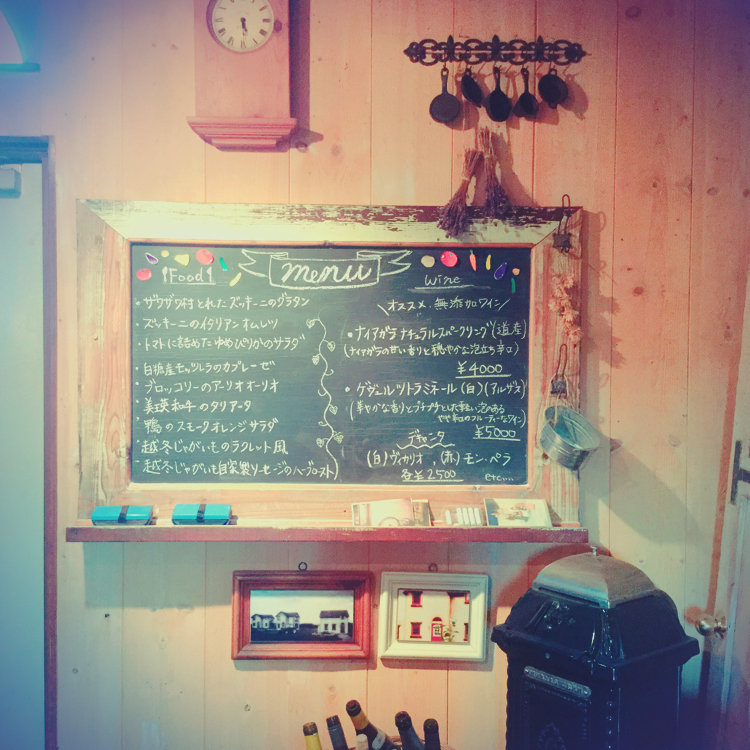 menu
Food
・ザワザワ村とれたズッキーニのグラタン
・ズッキーニのイタリアンオムレツ
・トマトに詰めたゆめぴりかのサラダ
・白糠産モッツレラのカプレーゼ
・ブロッコリーのアーリオオーリオ
・美瑛和牛のタリアータ
・鴨のスモークオレンジサラダ
・越冬じゃがいものラクレット風
・越冬じゃがいも自家製ソーセージのハーブロースト
wine
\オススメ.無添加ワイン/
・ナイアガラ ナチュラルスパークリング(道産)
(ナイアガラの甘い香りと穏やかな泡立ち辛口)
¥4000
・ゲヴェルツトラミネール(白)(アルザス)
(華やかな香りとプチプチとした軽い泡のある
やや辛口のフルーティーなワイン)
¥5000
(白)ヴィカリオ , (赤)モン・ペラ
各¥2500
etc....